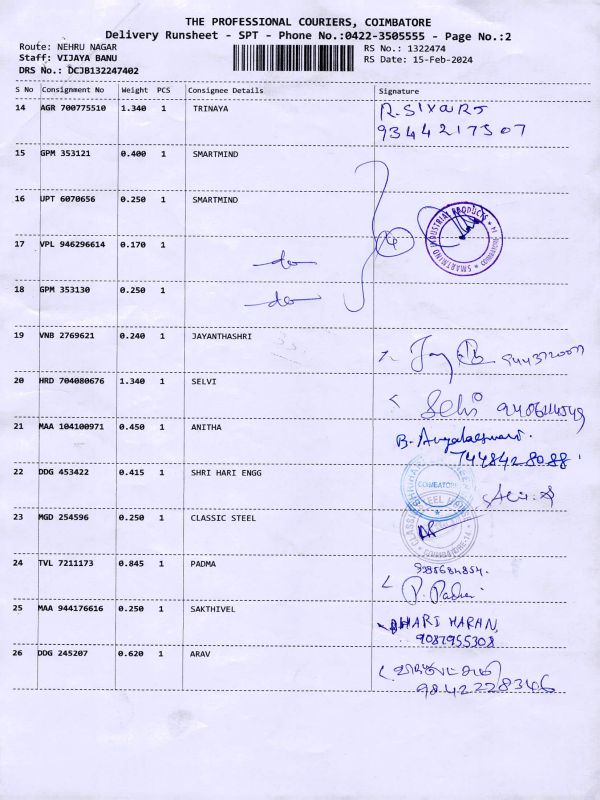 THE PROFESSIONAL COURIERS, COIMBATORE
Delivery Runsheet - SPT - Phone No.:0422-3505555 - Page No.:2
Route: NEHRU NAGAR
RS No.: 1322474
Staff: VIJAYA BANU
RS Date: 15-Feb-2024
DRS No.: DCJB132247402
S No Consignment No Weight PCS Consignee Details Signature
14 AGR 700775510 1.340 1 TRINAYA
9344217507
15 GPM 353121 0.400 1 SMARTMIND
16 UPT 6070656 0.250 1 SMARTMIND
SMARTMIND INDUSTRIAL PRODUCTS
17 VPL 946296614 0.170 1 do
4
18 GPM 353130 0.250 1 do
19 VNB 2769621 0.240 1 JAYANTHASHRI
20 HRD 704080676 1.340 1 SELVI
Selvi
21 MAA 104100971 0.450 1 ANITHA
B.
7448428088
22 DDG 453422 0.415 1 SHRI HARI ENGG
COIMBATORE
23 MGD 254596 0.250 1 CLASSIC STEEL
CLASSIC STEEL
COIMBATORE-14
24 TVL 7211173 0.845 1 PADMA
P. Padma
25 MAA 944176616 0.250 1 SAKTHIVEL
HARI HARAN
9087955308
26 DDG 245207 0.620 1 ARAV